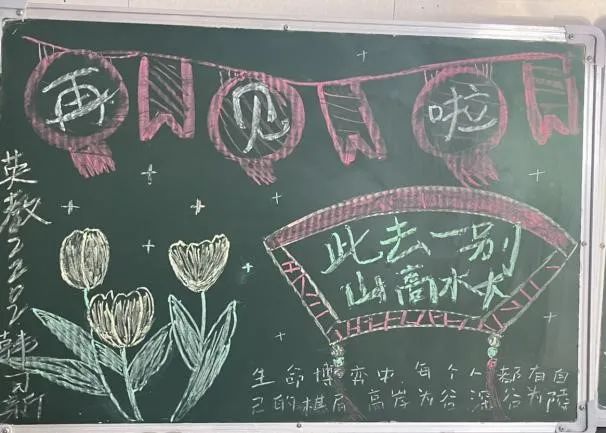 再见啦
英教2202韩
此去一别
山高水长
生命博弈中,每个人都有自
己的棋局 高岸为谷深谷为陵